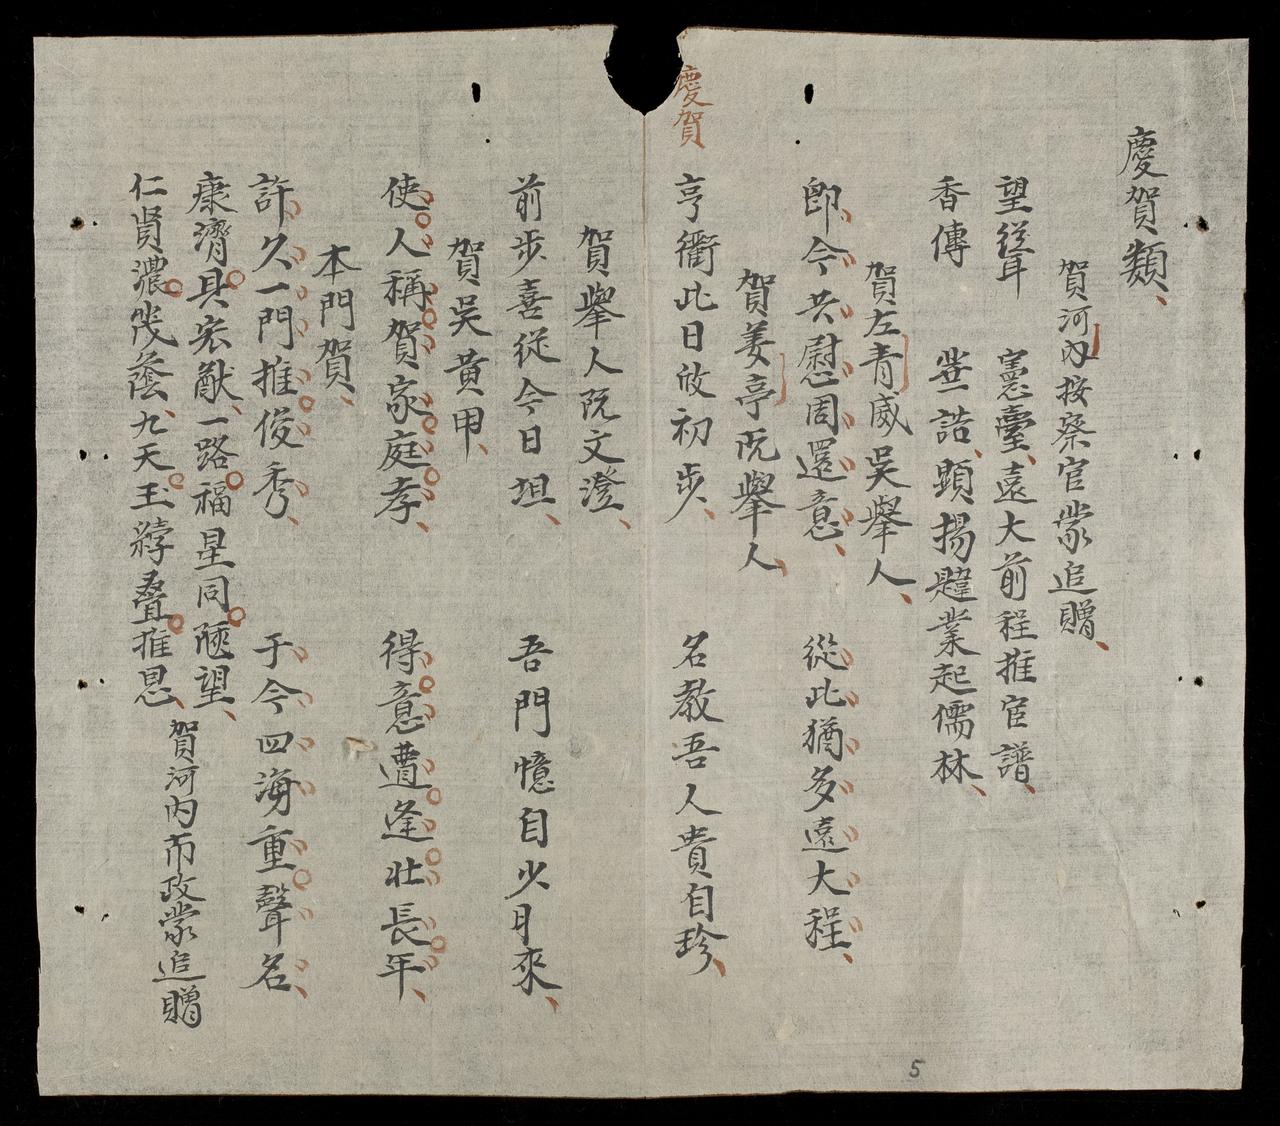 慶賀類
賀河內按察官蒙追贈
望聳 憲臺遠大前程推宦譜
香傳 誥顯揚韙業起儒林
賀左青威吳舉人
即今共慰周還意 從此猶多遠大程
賀姜亭阮舉人
慶賀
亨衢此日攽初步 名教吾人貴自珍
賀舉人阮文澄
前步喜從今日坦 吾門憶自少時來
賀吳黄甲
使人稱賀家庭孝 得意遭逢壯長年
本門賀
許久一門推俊秀 于今四海重聲名
康濟具宏猷一路福星同陲望
仁賢濃茂蔭九天玉綍疊推恩
賀河內布政蒙追贈
5